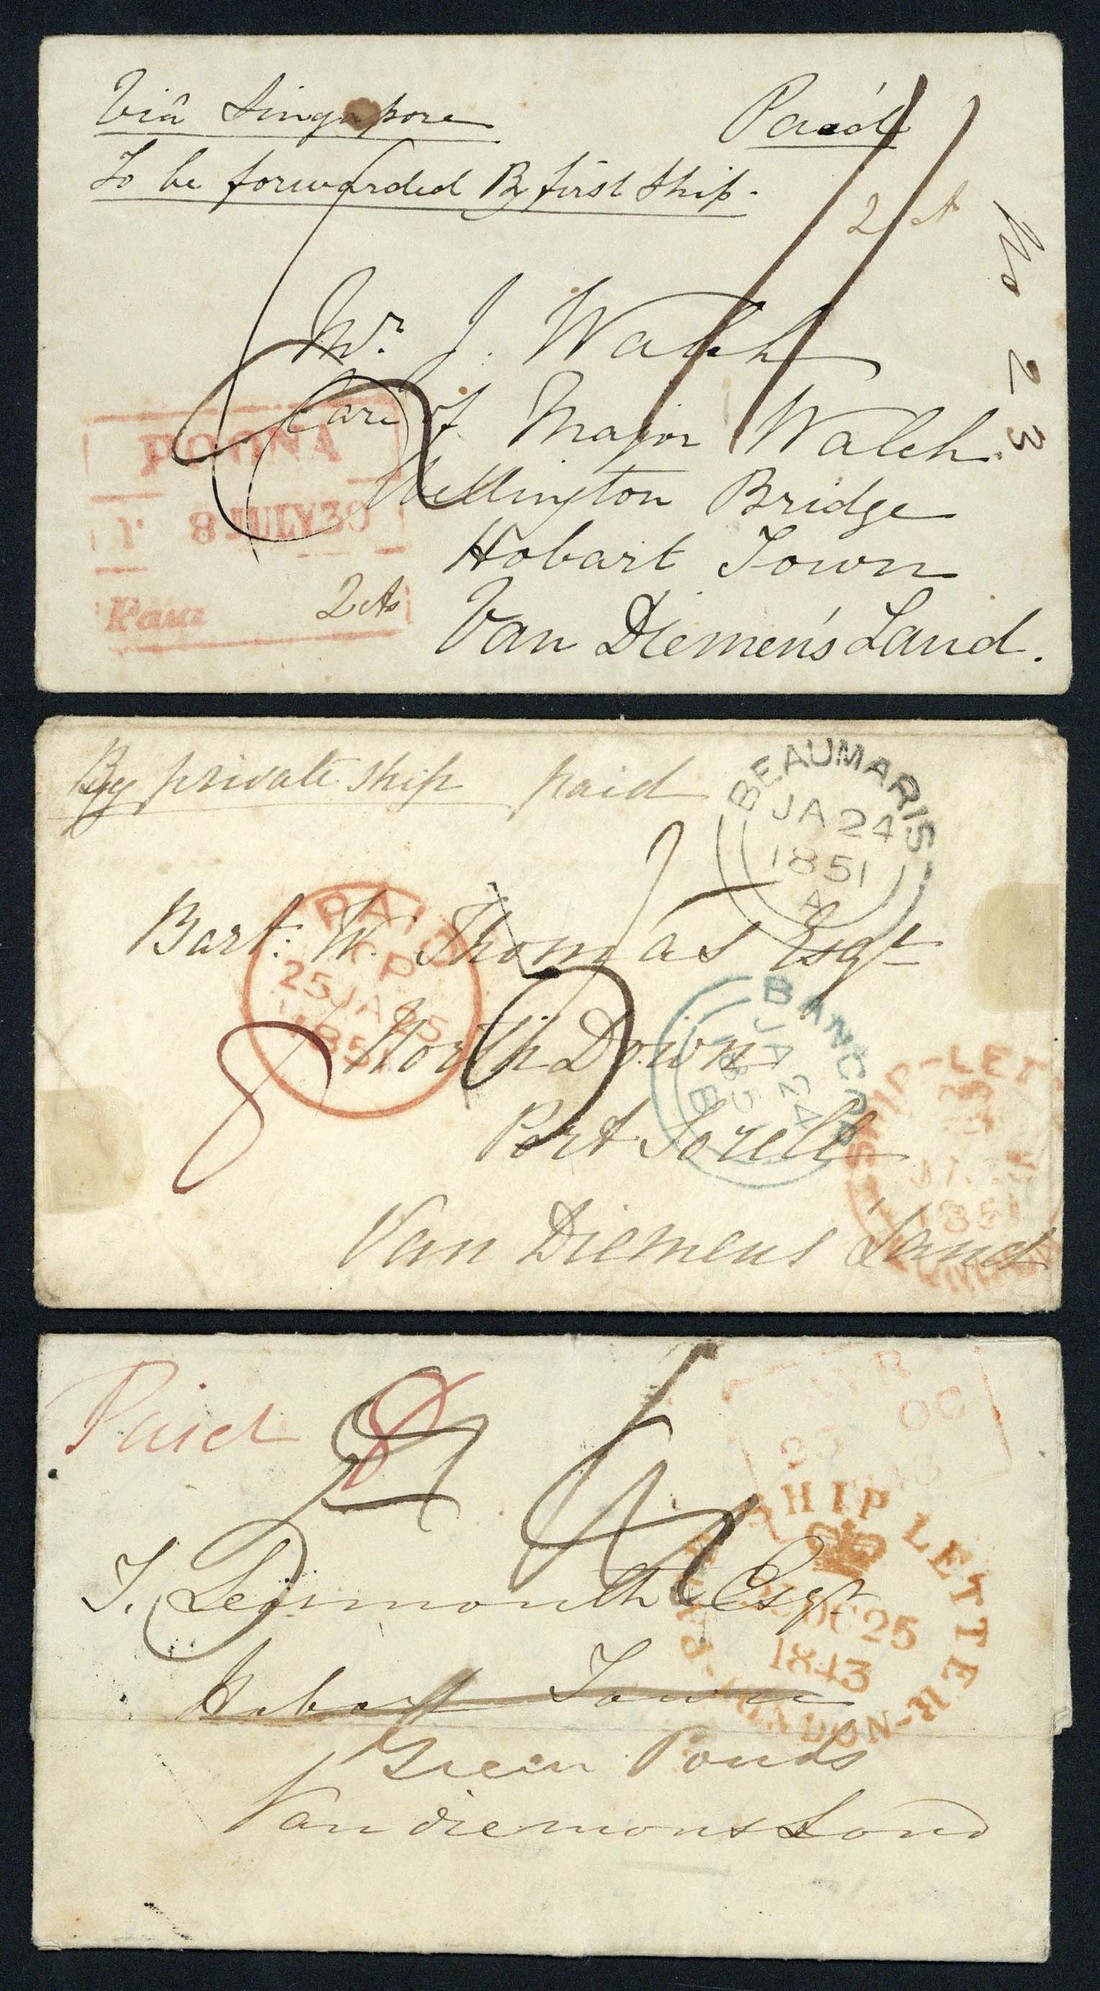 Viâ Singapore
Paid
To be forwarded By first Ship.
No 23
Mr. J. Walch
Care of Major Walch.
Wellington Bridge
Hobart Town
Van Diemen's Land.
POONA
8 JULY 30
Paid
2 As
By private ship paid
BEAUMARIS
JA 24
1851
A
Bart: W. Thomas Esqr
North Down
Port Sorell
Van Diemens Land
PAID
KP
25 JA 25
1851
8
BANGOR
JA 24
1851
B
SHIP-LETTER
1851
LONDON
Paid 8
SHIP LETTER
DC 25
1843
LONDON
T. Learmonth Esqr
Hobart Town
Green Ponds
Van diemons Land